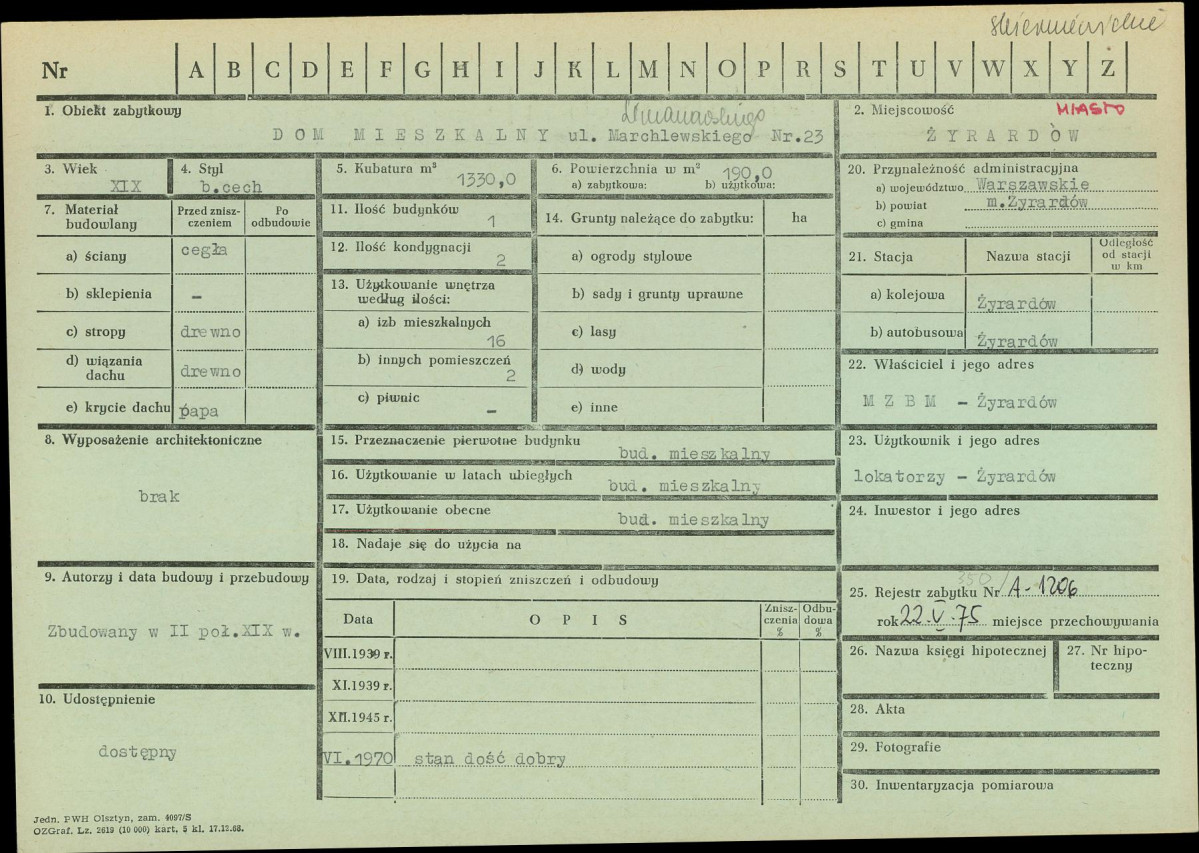 skierniewickie
Nr A B C D E F G H I J K L M N O P R S T U V W X Y Z Ż
1. Obiekt zabytkowy
DOM MIESZKALNY ul. Marchlewskiego Nr.23
2. Miejscowość MIASTO
ŻYRARDÓW
3. Wiek
XIX
4. Styl
b.cech
5. Kubatura m³
1330,0
6. Powierzchnia w m² 190,0
a) zabytkowa: b) użytkowa:
20. Przynależność administracyjna
a) województwo Warszawskie
b) powiat m.Żyrardów
c) gmina
7. Materiał budowlany
Przed zniszczeniem
Po odbudowie
a) ściany cegła
b) sklepienia –
c) stropy drewno
d) wiązania dachu drewno
e) krycie dachu papa
11. Ilość budynków
1
12. Ilość kondygnacji
2
13. Użytkowanie wnętrza
według ilości:
a) izb mieszkalnych
16
b) innych pomieszczeń
2
c) piwnic
–
14. Grunty należące do zabytku: ha
a) ogrody stylowe
b) sady i grunty uprawne
c) lasy
d) wody
e) inne
21. Stacja
Nazwa stacji
Odległość
od stacji
w km
a) kolejowa Żyrardów
b) autobusowa Żyrardów
22. Właściciel i jego adres
MZBM – Żyrardów
8. Wyposażenie architektoniczne
brak
15. Przeznaczenie pierwotne budynku
bud. mieszkalny
16. Użytkowanie w latach ubiegłych
bud. mieszkalny
17. Użytkowanie obecne
bud. mieszkalny
18. Nadaje się do użycia na
23. Użytkownik i jego adres
lokatorzy – Żyrardów
24. Inwestor i jego adres
9. Autorzy i data budowy i przebudowy
Zbudowany w II poł.XIX w.
10. Udostępnienie
dostępny
19. Data, rodzaj i stopień zniszczeń i odbudowy
Data
OPIS
Zniszczenia %
Odbudowa %
VIII.1939 r.
XI.1939 r.
XII.1945 r.
VI.1970 stan dość dobry
350/
25. Rejestr zabytku Nr A-1206
rok 22.V.75 miejsce przechowywania
26. Nazwa księgi hipotecznej
27. Nr hipoteczny
28. Akta
29. Fotografie
30. Inwentaryzacja pomiarowa
Jedn. PWH Olsztyn, zam. 4097/S
OZGraf. Lz. 2619 (10 000) kart, 5 kl. 17.12.68.